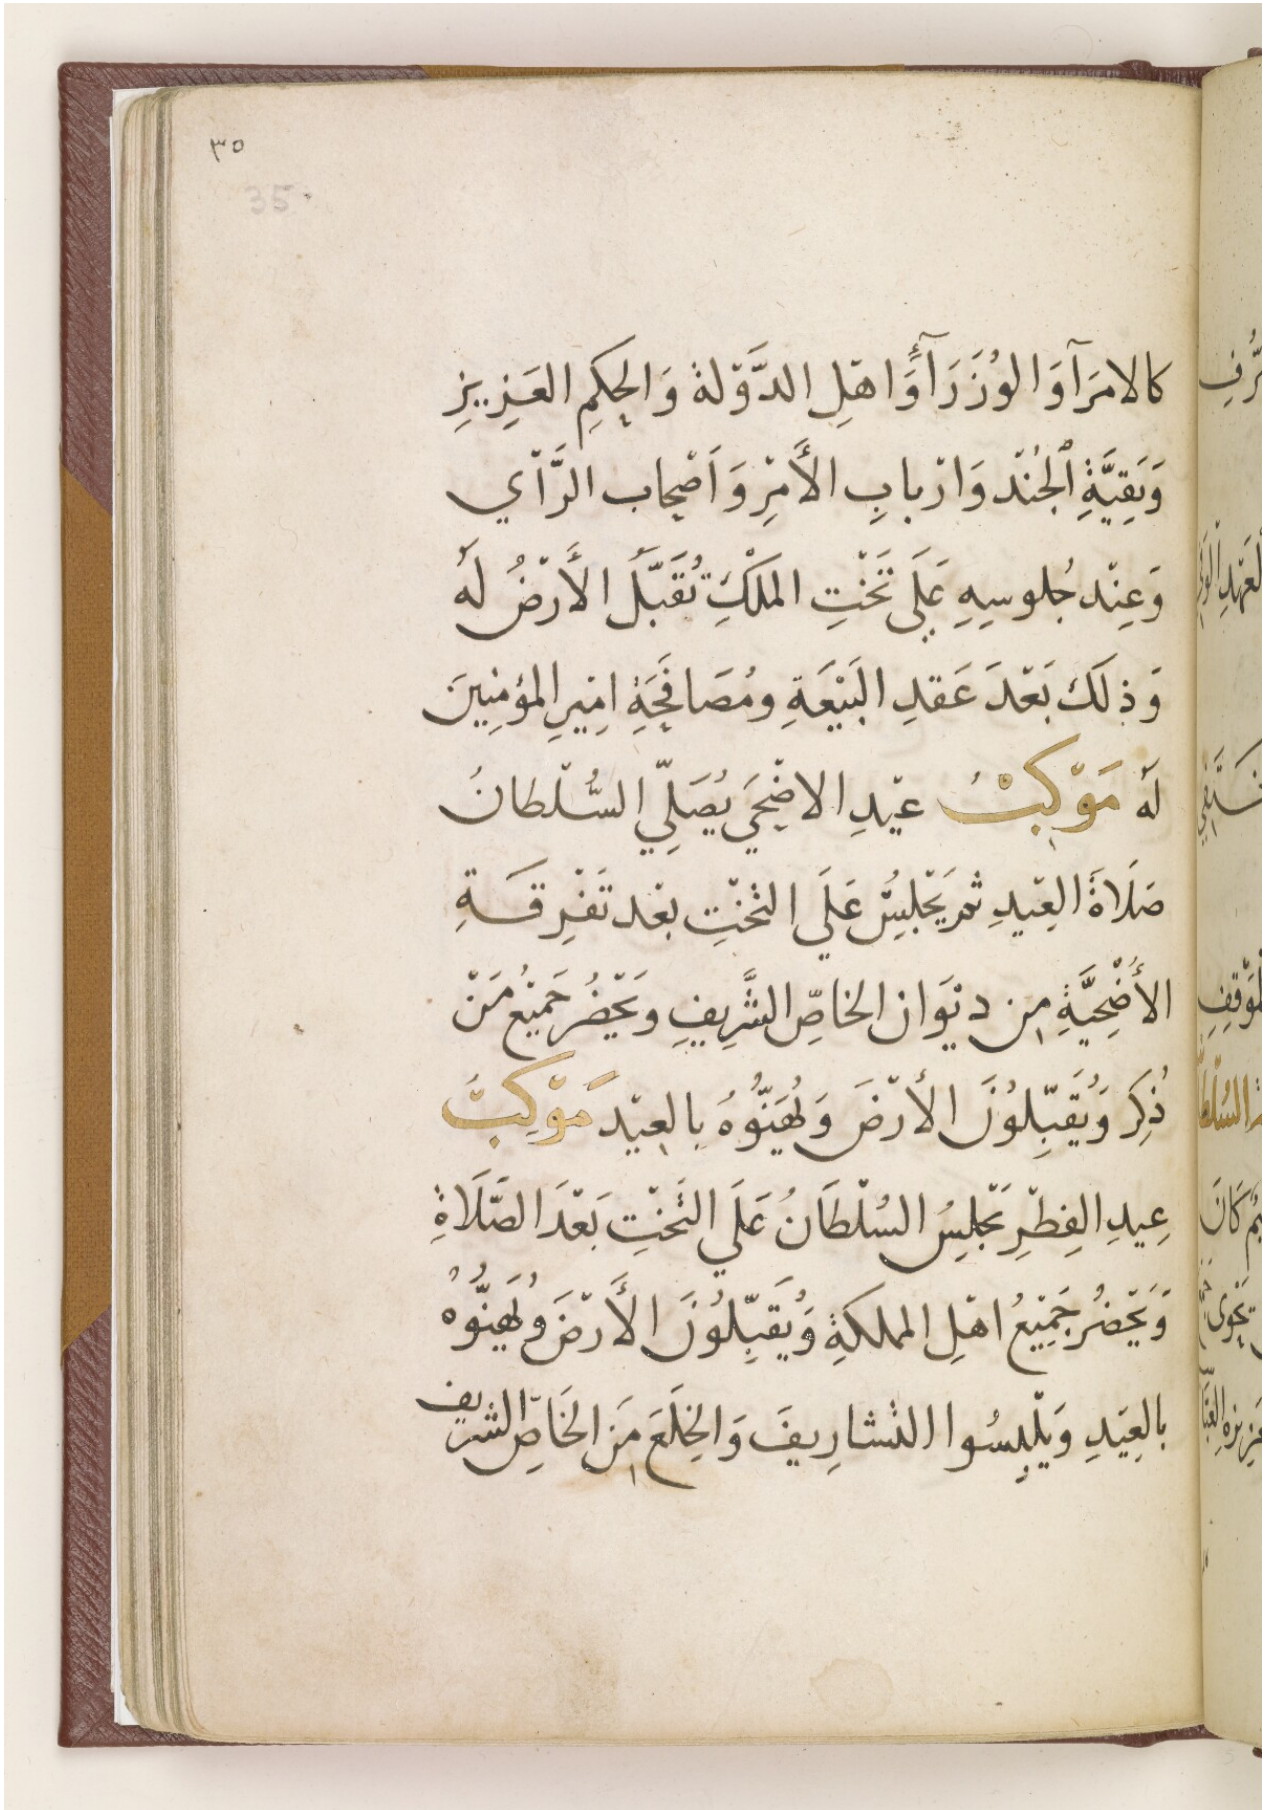 ٣٥
35
كالامَرآ وَالوُزَرَآءِ وَاهْلِ الدَّوْلة وَالحِكَمِ العَزِيزِ
وَبَقِيَّةِ الْجُنْد وَارْبابِ الأَمْرِ وَاَصْحاب الرَّاْي
وَعِنْد جُلوسِهِ عَلَي تَخْتِ المَلْكِ تُقَبَّلُ الأَرْضُ لَهُ
وَذلَكَ بَعْدَ عَقدِ البَيْعَةِ ومُصَافَحَةِ امِيْرِ المؤمِنِينَ
لَهُ مَوْكبْ عيْدِ الاضْحَي يُصَلِّي السُّلْطانُ
صَلَاةَ العِيْدِ ثم يَجْلِسُ عَلَي التخْتِ بعْد تَفْرِقَةِ
الأُضْحِيَّةِ مِن ديْوَان الخاصِّ الشَّرِيفِ ويَحْضُر جَمِيْعُ مَنْ
ذُكِر وَيُقَبِّلُوْنَ الأرْضَ وَيُهَنُّوْهُ بالعِيْد مَوْكِبُ
عِيدِ الفِطْرِ يَجْلِسُ السُلْطَانُ عَلَي التَخْتِ بَعْدَ الصَّلَاةِ
وَيَحْضُر جَمِيْعُ اهْلِ المملكَةِ وَيُقَبِّلُوْنَ الأَرْضَ وُيُهَنُّوْهُ
بالعِيَدِ وَيلْبِسُوا التشارِيفَ وَالخِلَعَ مِنَ الخَاصِّ الشريف